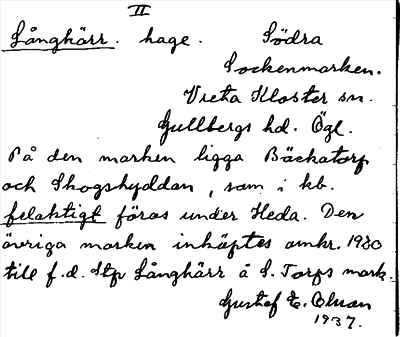 II
Långhärr. hage. Södra
Sockenmarken.
Vreta Kloster sn.
Gullbergs hd. Ögl.
På den marken ligga Bäckatorp
och Skogshyddan, som i kb.
felaktigt föras under Heda. Den
övriga marken inköptes omkr. 1930
till f.d. Stp Långhärr å S. Torps mark.
Gustaf E. Olsson
1937.